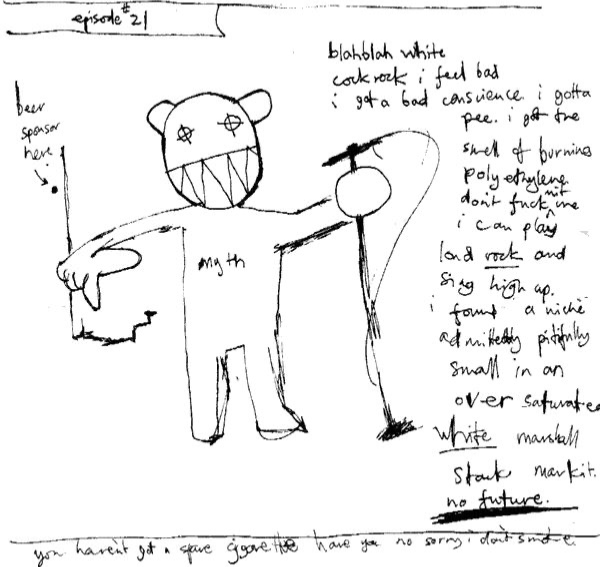 episode #21
beer
sponsor
here
myth
blahblah white
cockrock i feel bad
i got a bad conscience. i gotta
pee. i got the
smell of burning
polyethylene
don't fuck wit me
i can play
loud rock and
sing high up.
i found a niche
admittedly pitifully
small in an
over saturated
white marshall
stack markit.
no future.
you havent got a spare cigarette have you no sorry i don't smoke.